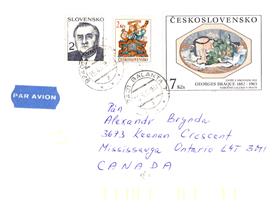 SLOVENSKO
2
ČESKOSLOVENSKO
ČESKOSLOVENSKO
7 Kčs
GEORGES BRAQUE 1882 - 1963
GALANTA 1
PAR AVION
Pán
Alexandr Brynda
3673 Keenan Crescent
Mississauga Ontario L4T 3M1
CANADA